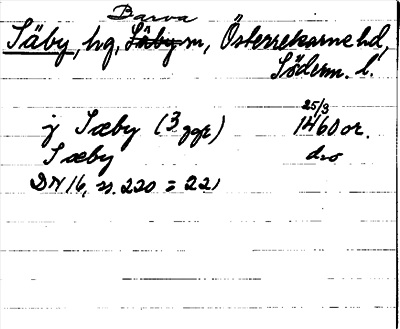 Barva
Säby, hg, Säby m, Österrekarne hd,
Söderm. l.
25/3
j Sæby (3 ggr) 1460 or.
Sæby dro
DN 16, s. 220 = 221